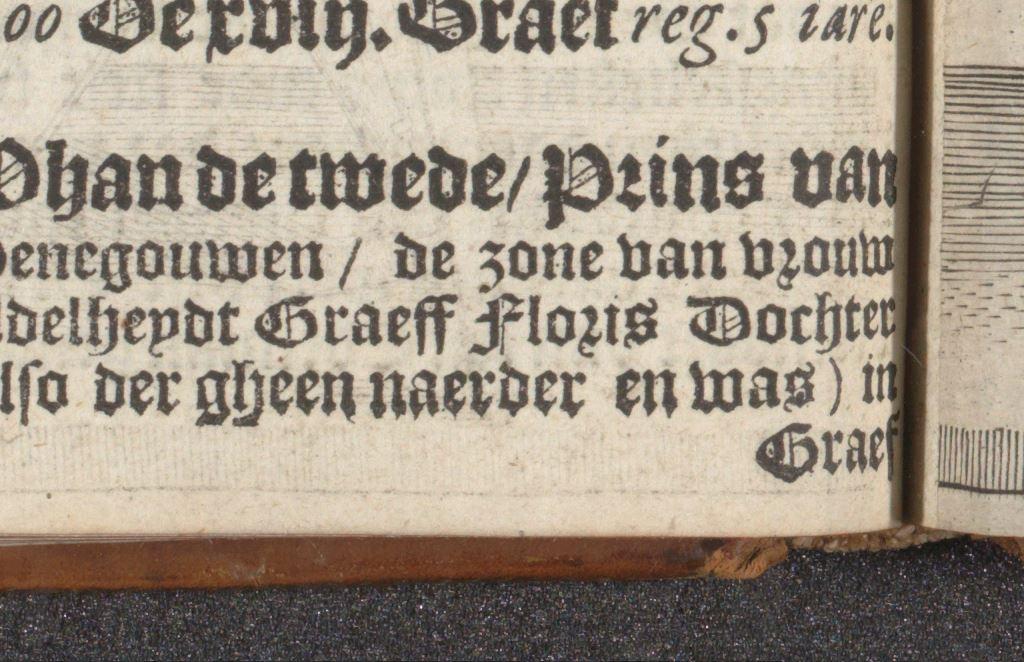 00 De xviij. Graef reg. 5 iare.
Ohan de twede / Prins van
Henegouwen / de zone van vrouw
Adelheydt Graeff Floris Dochter
also der gheen naerder en was ) in
Graef